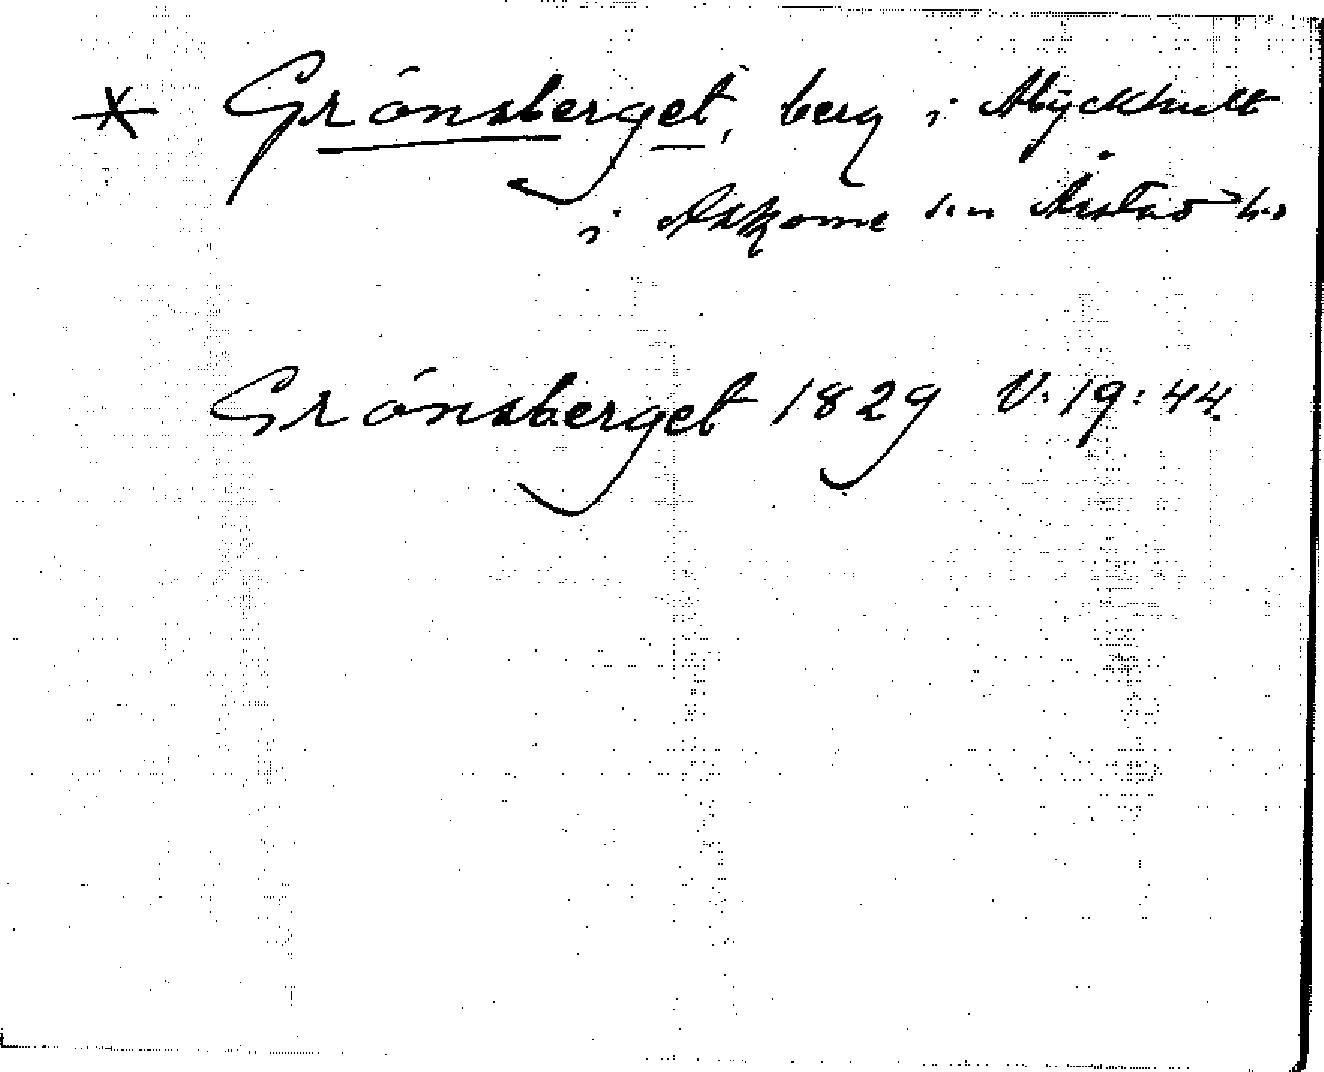 * Grönsberget, berg i Myckhult
i Askome sn Årstad hd
Grönsberget 1829 V:19:44